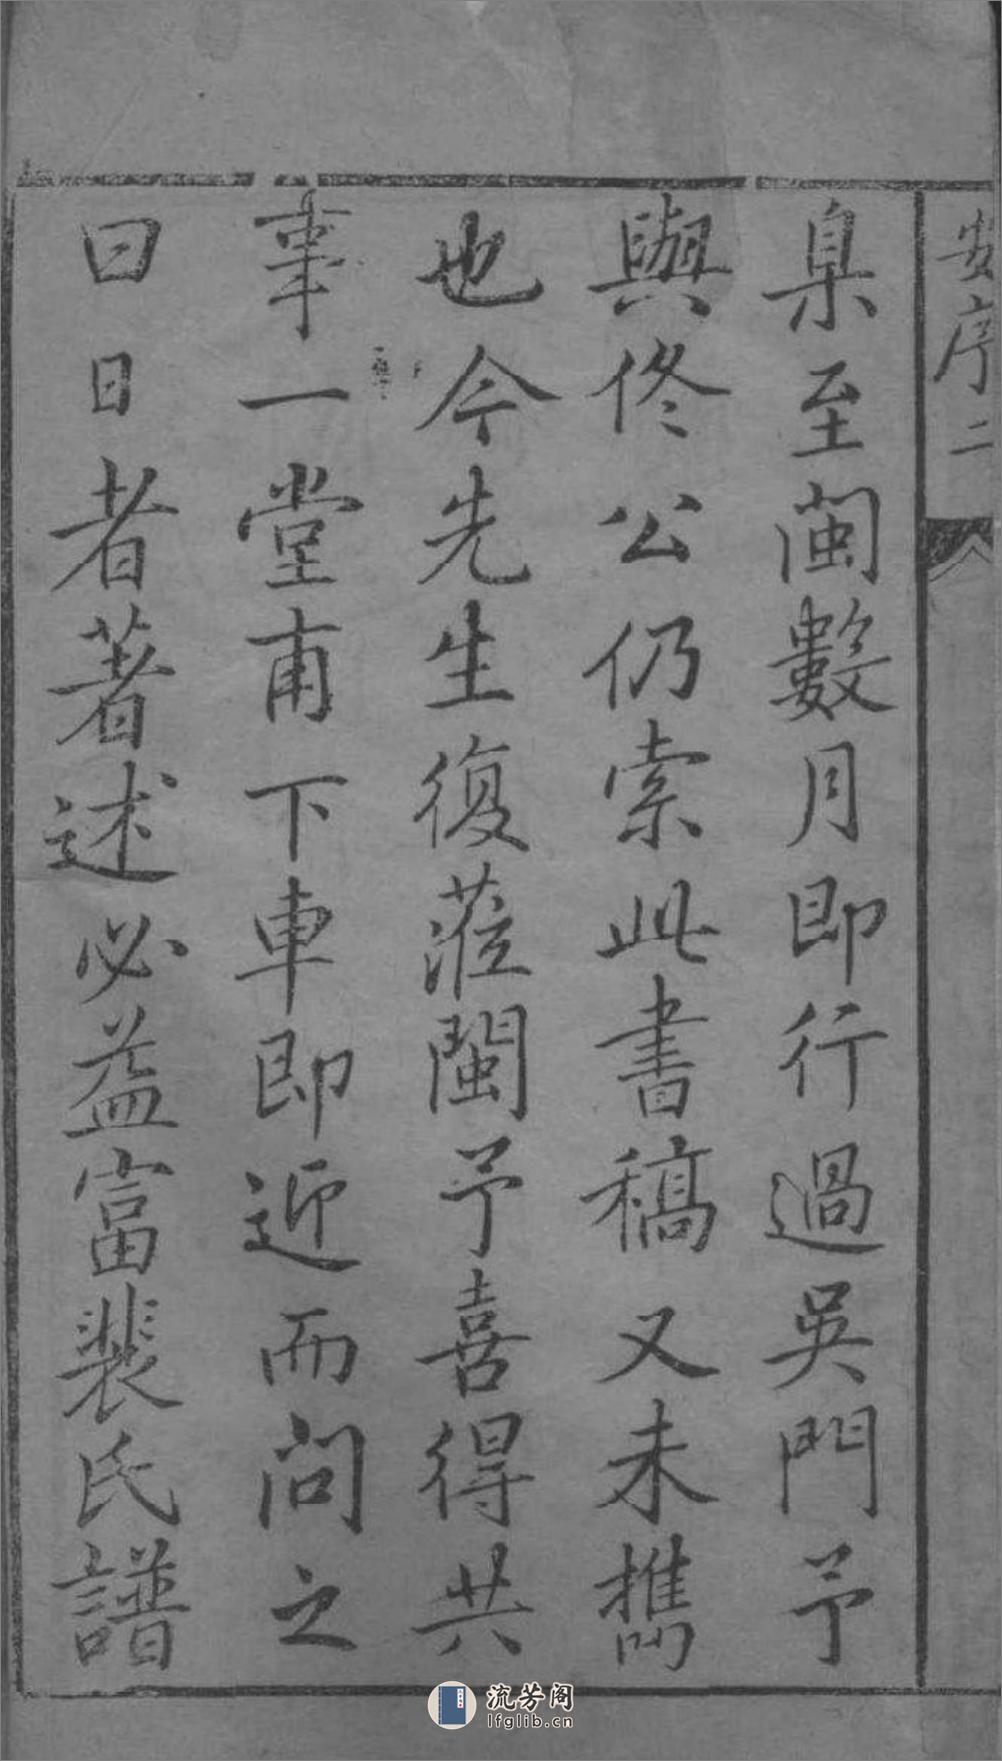 安序 二
臬至閩數月即行過吳門予
與佟公仍索此書稿又未携
也今先生復蒞閩予喜得共
事一堂甫下車即近而問之
曰日者著述必益富裴氏譜
流芳阁
lfglib.cn